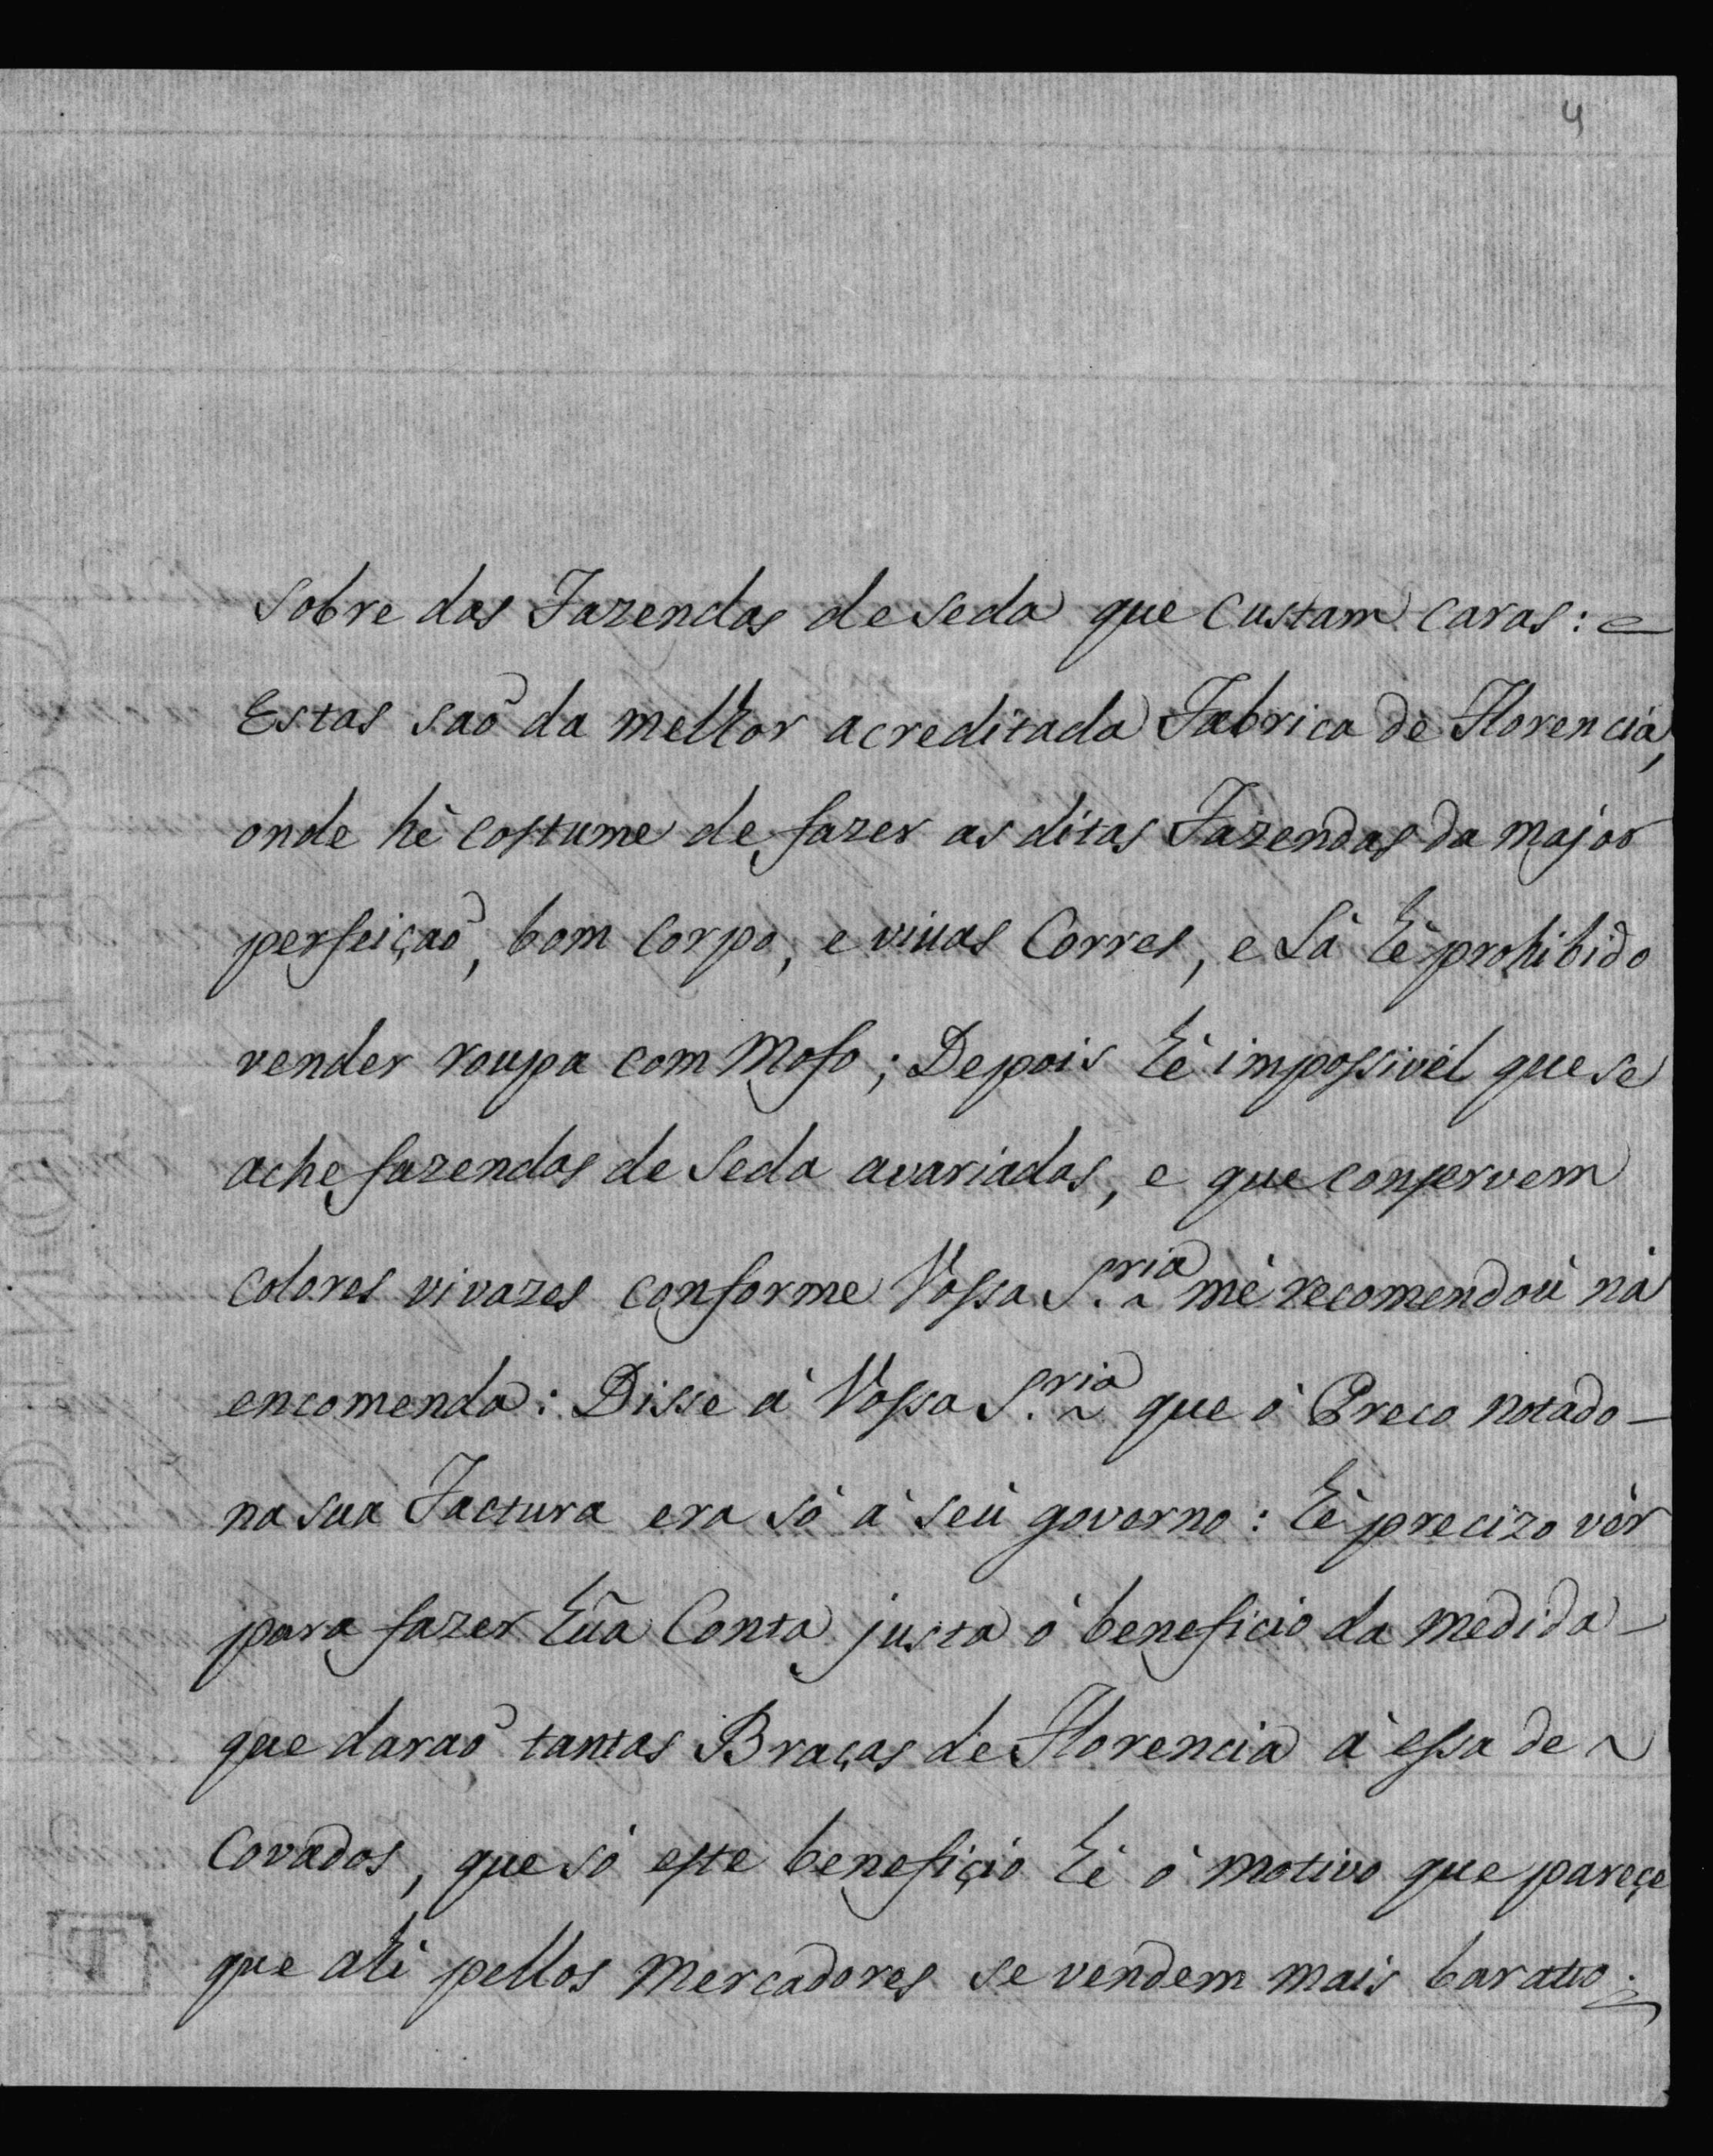 4
Sobre das Fazendas de seda que custam caras: e
Estas saõ da melhor acreditada Fabrica de Florencia,
onde hè costume de fazer as ditas Fazendas da major
perfeiçaõ, bom corpo, e viuas Corres, e Lá hè prohibido
vender roupa com Mofo; Depois hè impossivèl que se
ache fazendas de seda avariadas, e que conservem
colores vivazes conforme Vossa S.ria mè recomendoù nà
encomenda: Disse à Vossa S.ria que ò Preco notado
na sua Factura era sò à seù governo: hè precizo vèr
para fazer hũa Conta justa ò beneficio da medida
que daraõ tantas Braças de Florencia à essa de
Covados, que sò este benefiçio hè ò motivo que pareçe
que ahi pellos Mercadores se vendem mais baratto;